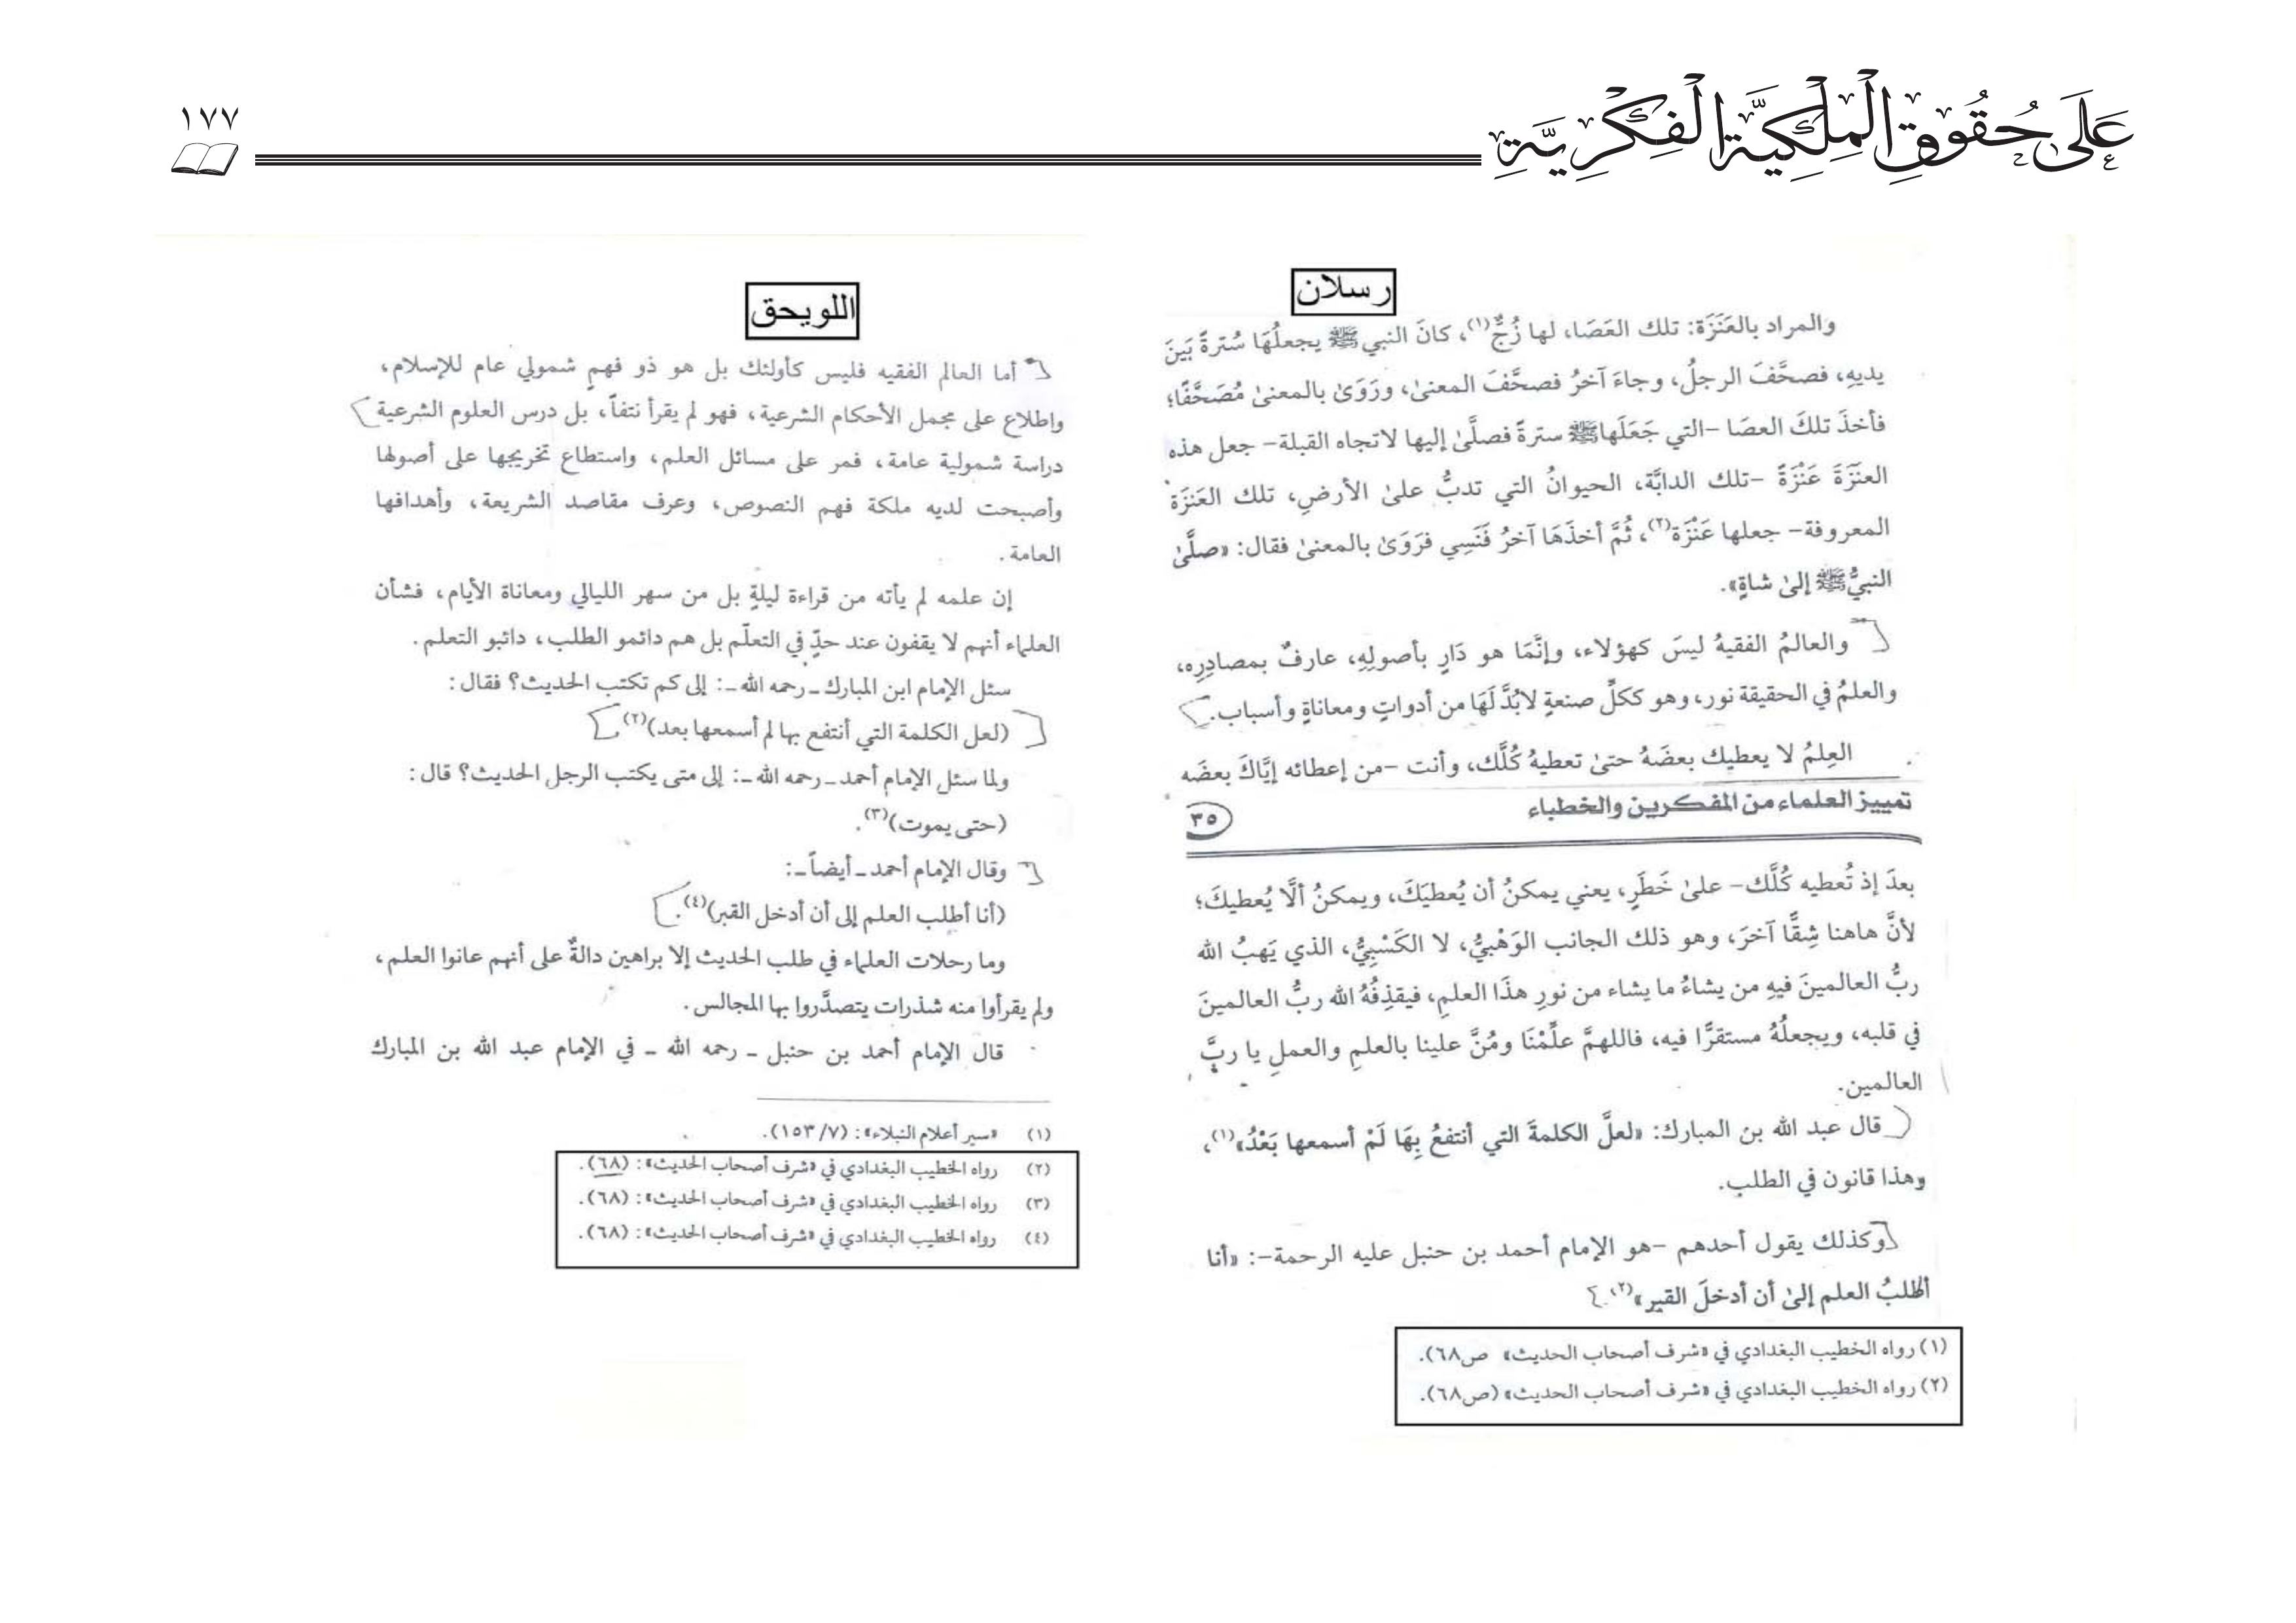 عَلَى حُقُوقِ الْمِلْكِيَّةِ الْفِكْرِيَّةِ
١٧٧
رسلان
والمراد بالعَنَزَة: تلك العَصَا، لها زُجٌّ(١)، كانَ النبي ﷺ يجعلُهَا سُترةً بَينَ
يديهِ، فصحَّفَ الرجلُ، وجاءَ آخرُ فصحَّفَ المعنىٰ، ورَوَىٰ بالمعنىٰ مُصَحَّفًا؛
فأخذَ تلكَ العصَا –التي جَعَلَها ﷺ سترةً فصلَّىٰ إليها لاتجاه القبلة– جعل هذه
العنَزَةَ عَنْزَةً –تلك الدابَّة، الحيوانُ التي تدبُّ علىٰ الأرضِ، تلك العَنزَة
المعروفة– جعلها عَنْزَة(٢)، ثُمَّ أخذَهَا آخرُ فَنَسِي فرَوَىٰ بالمعنىٰ فقال: «صلَّىٰ
النبيُّ ﷺ إلىٰ شاةٍ».
والعالمُ الفقيهُ ليسَ كهؤلاء، وإنَّمَا هو دَارٍ بأصولِهِ، عارفٌ بمصادِرِه،
والعلمُ في الحقيقة نور، وهو ككلِّ صنعةٍ لابُدَّ لَهَا من أدواتٍ ومعاناةٍ وأسباب.
العِلمُ لا يعطيك بعضَهُ حتىٰ تعطيهُ كُلَّك، وأنت –من إعطائه إيَّاكَ بعضَه
تمييز العلماء من المفكرين والخطباء
٣٥
بعدَ إذ تُعطيه كُلَّك– علىٰ خَطَرٍ، يعني يمكنُ أن يُعطيَكَ، ويمكنُ ألَّا يُعطيكَ؛
لأنَّ هاهنا شِقًّا آخرَ، وهو ذلك الجانب الوَهْبيُّ، لا الكَسْبِيُّ، الذي يَهبُ الله
ربُّ العالمينَ فيهِ من يشاءُ ما يشاء من نورِ هذَا العلمِ، فيقذِفُهُ الله ربُّ العالمينَ
في قلبه، ويجعلُهُ مستقرًّا فيه، فاللهمَّ علِّمْنَا ومُنَّ علينا بالعلمِ والعملِ يا ربَّ
العالمين.
قال عبد الله بن المبارك: «لعلَّ الكلمةَ التي أنتفعُ بِهَا لَمْ أسمعها بَعْدُ»(١)،
وهذا قانون في الطلب.
وكذلك يقول أحدهم –هو الإمام أحمد بن حنبل عليه الرحمة–: «أنا
أطلبُ العلم إلىٰ أن أدخلَ القبر»(٢).
(١) رواه الخطيب البغدادي في «شرف أصحاب الحديث» ص٦٨).
(٢) رواه الخطيب البغدادي في «شرف أصحاب الحديث» (ص٦٨).
اللويحق
أما العالم الفقيه فليس كأولئك بل هو ذو فهمٍ شمولي عام للإسلام،
واطلاع على مجمل الأحكام الشرعية، فهو لم يقرأ نتفاً، بل درس العلوم الشرعية
دراسة شمولية عامة، فمر على مسائل العلم، واستطاع تخريجها على أصولها
وأصبحت لديه ملكة فهم النصوص، وعرف مقاصد الشريعة، وأهدافها
العامة.
إن علمه لم يأته من قراءة ليلةٍ بل من سهر الليالي ومعاناة الأيام، فشأن
العلماء أنهم لا يقفون عند حدٍّ في التعلّم بل هم دائمو الطلب، دائبو التعلم.
سئل الإمام ابن المبارك ـ رحمه الله ـ: إلى كم تكتب الحديث؟ فقال:
(لعل الكلمة التي أنتفع بها لم أسمعها بعد)(٢)
ولما سئل الإمام أحمد ـ رحمه الله ـ: إلى متى يكتب الرجل الحديث؟ قال:
(حتى يموت)(٣).
وقال الإمام أحمد ـ أيضاً ـ:
(أنا أطلب العلم إلى أن أدخل القبر)(٤).
وما رحلات العلماء في طلب الحديث إلا براهين دالةٌ على أنهم عانوا العلم،
ولم يقرأوا منه شذرات يتصدَّروا بها المجالس.
قال الإمام أحمد بن حنبل ـ رحمه الله ـ في الإمام عبد الله بن المبارك
(١) «سير أعلام النبلاء»: (٧/١٥٣).
(٢) رواه الخطيب البغدادي في «شرف أصحاب الحديث»: (٦٨).
(٣) رواه الخطيب البغدادي في «شرف أصحاب الحديث»: (٦٨).
(٤) رواه الخطيب البغدادي في «شرف أصحاب الحديث»: (٦٨).